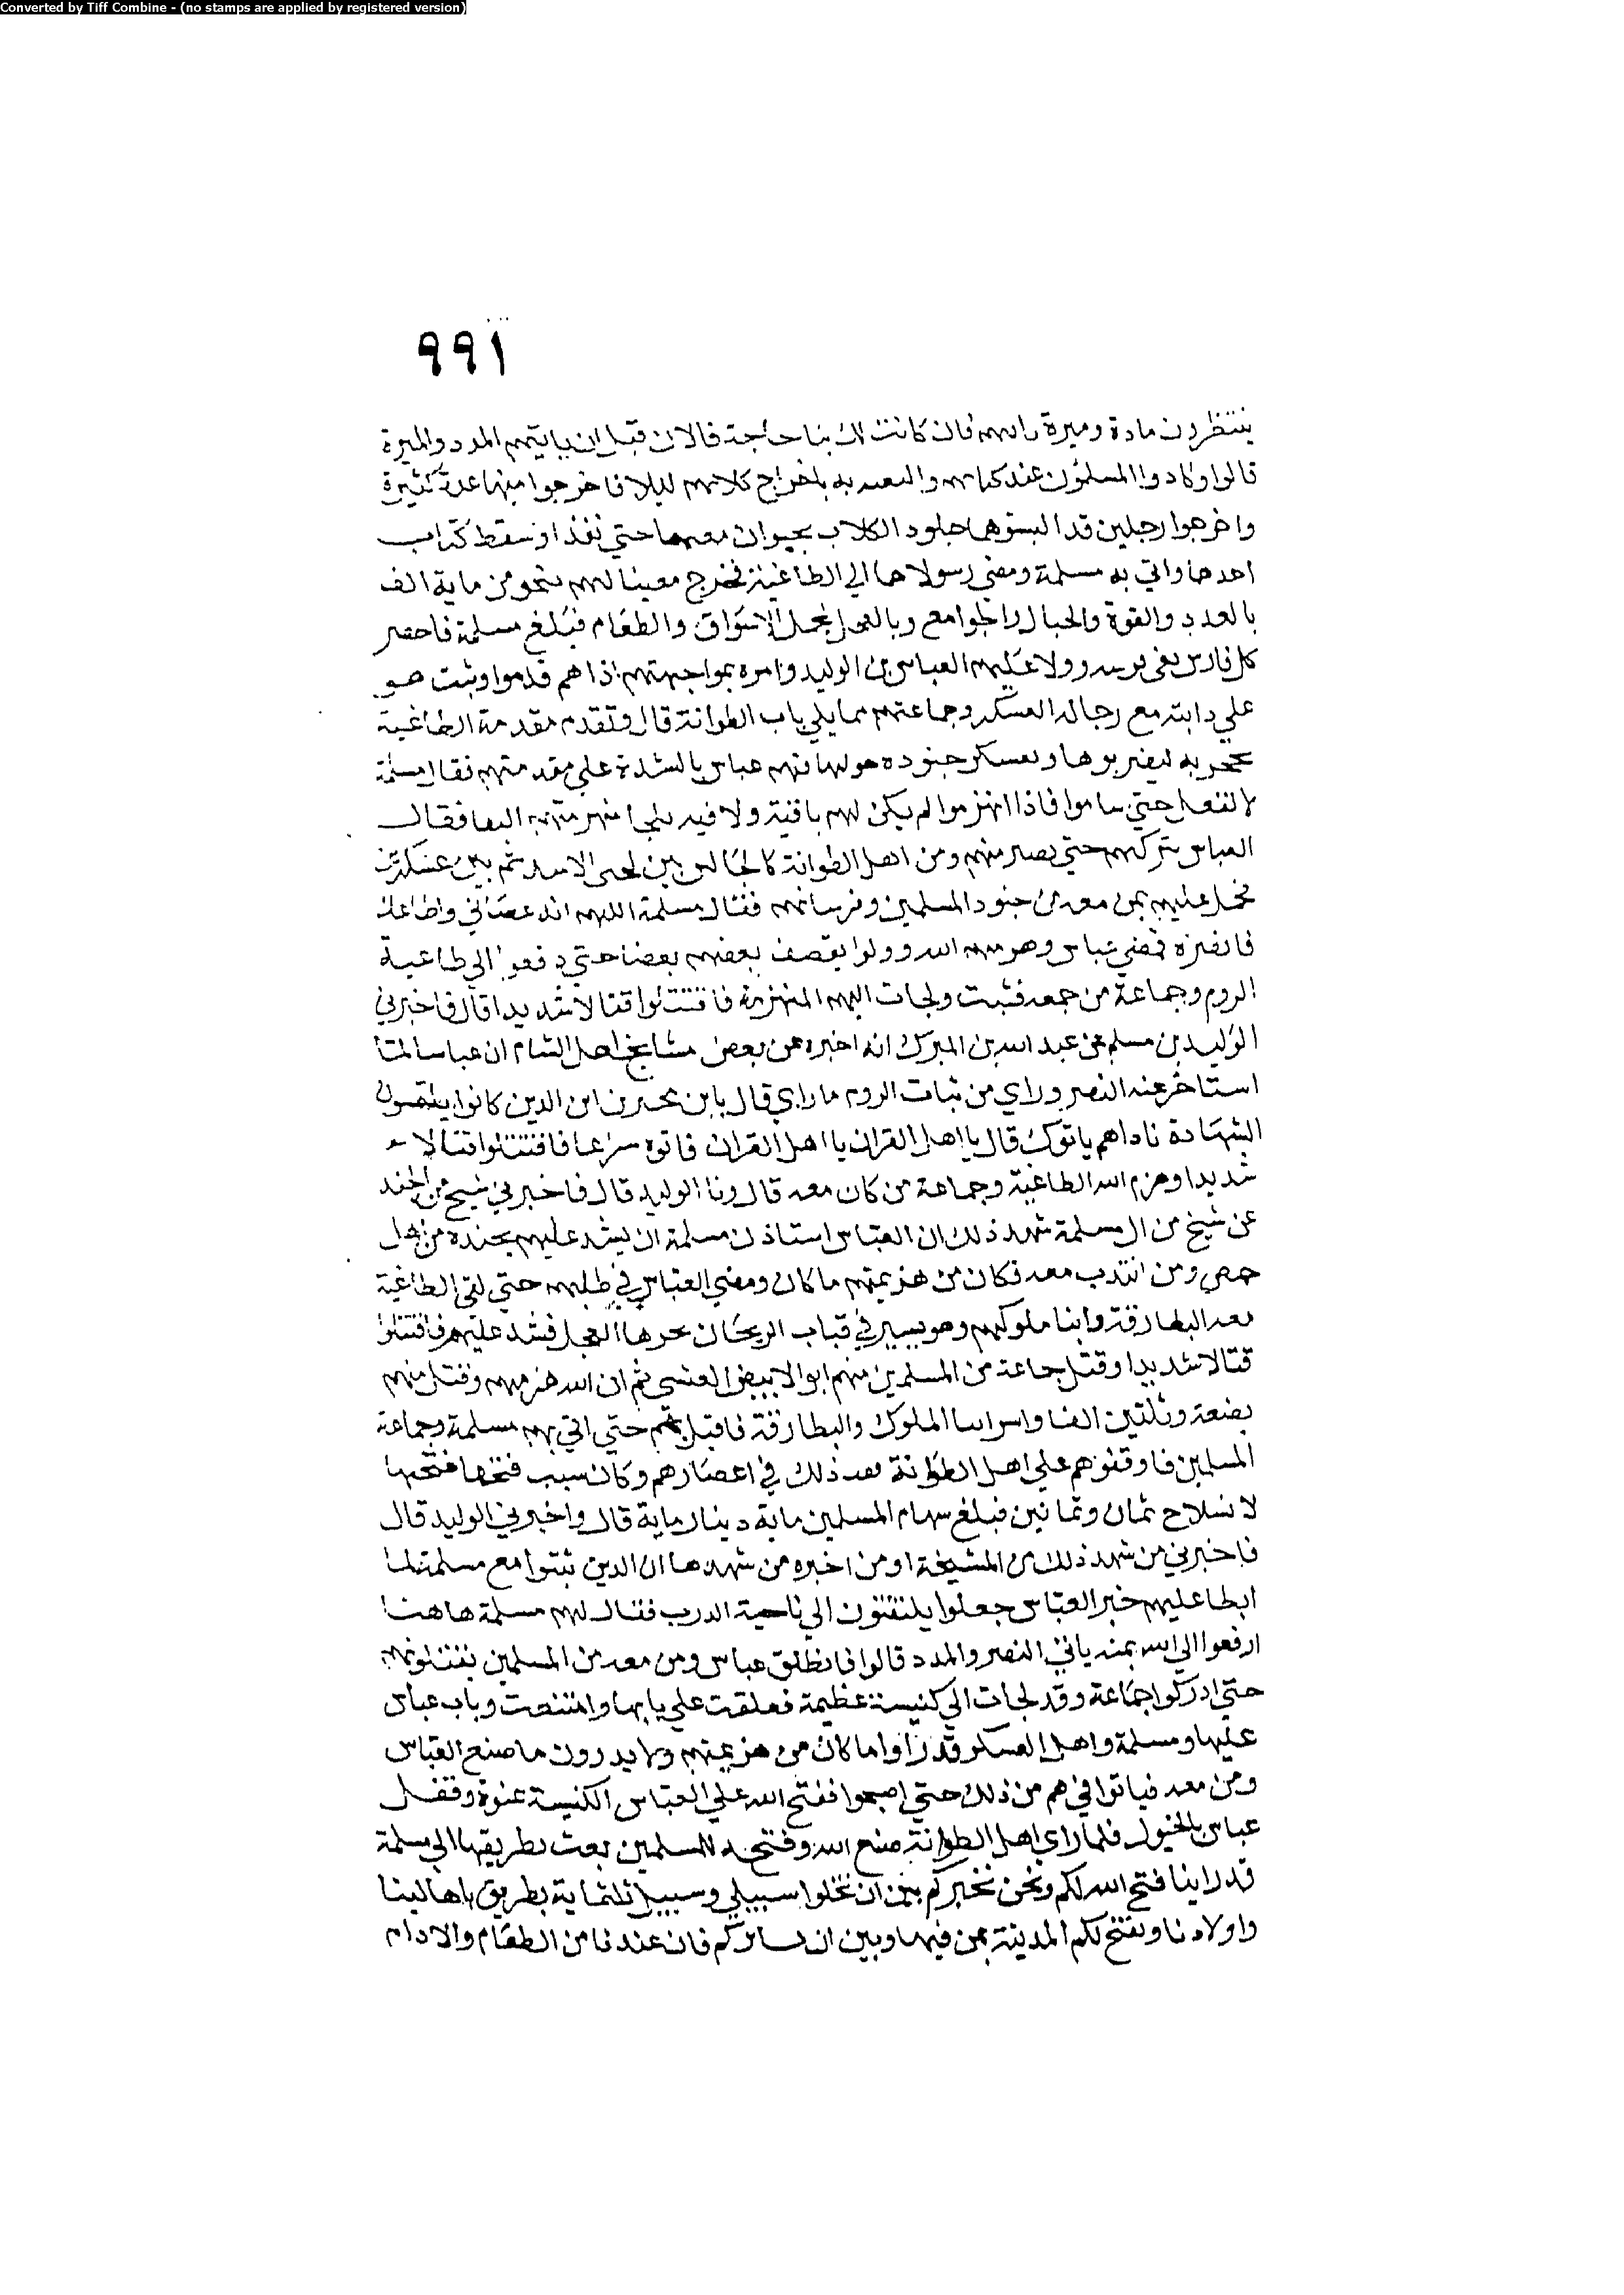 Converted by Tiff Combine - (no stamps are applied by registered version)
٩٩١
ينتظرون مادة وميرة فان كانت لك بنا حاجة فالان قبل ان ياتيهم المدد والميرة
قالوا وكادوا المسلمون عند باخراج كلابهم ليلا فاخرجوا منها عدة كثيرة
واخرجوا رجلين قد البسوهما جلود الكلاب معهما حتي نفذا وسقط كتاب
احدهما واتي به مسلمة ومضي رسولاهما الي الطاغية فخرج معينا لهم بنحو من ماية الف
بالعدد والقوة والحبال والجوامع وبالعجل تحمل الاسواق والطعام فبلغ مسلمة فاحضر
كل فارس وولا عليهم العباس بن الوليد وامره بمواجهتهم اذا هم قدموا وثبت هو
علي دابته مع رجاله العسكر وجماعتهم مما يلي باب الطوانة قال وتقدم مقدمة الطاغية
ليضربوها وتعسكر جنوده حولها فهم عباس بالشدة علي مقدمتهم فقال مسلمة
لا تفعل حتي فاذا انهزموا لم يكن لهم باقية ولا فيه فقال
العباس نتركهم حتي نصير منهم ومن اهل الطوانة كالجالس بين لحي الاسد ثم بين عسكرين
نحمل عليهم بمن معه من جنود المسلمين وفرسانهم فقال مسلمة اللهم انه عصاني واطاعك
فانصره فمضي عباس وهزمهم الله وولوا يقصف بعضهم بعضا حتي دفعوا الي طاغية
الروم وجماعة من جمعه فثبت ولجات اليهم المنهزمة فاقتتلوا قتالا شديدا قال فاخبرني
الوليد بن مسلم عن عبد الله بن المبرك انه اخبره عن بعض مشايخ اهل الشام ان عباسا لما
استاخر عنه النصر وراي من ثبات الروم ما راي قال يابن محيريز اين الدين كانوا يلتمسون
الشهادة ناداهم ياتوك قال يا اهل القران يا اهل القران فاتوه سراعا فاقتتلوا قتالا
شديدا وهزم الله الطاغية وجماعة من كان معه قال ونا الوليد قال فاخبرني شيخ من الجند
عن شيخ من ال مسلمة شهد ذلك ان العباس استاذن مسلمة ان يشد عليهم بجنده من اهل
حمص ومن انتدب معه فكان من هزيمتهم ما كان ومضي العباس في طلبهم حتي لقي الطاغية
معه البطارقة وابنا ملوكهم وهو يسير في قباب الريحان العجل فشد عليهم فاقتتلوا
قتالا شديدا وقتل جماعة من المسلمين منهم ابو الابيض العنسي ثم ان الله هزمهم وقتل منهم
بضعة وثلثين الفا واسر ابنا الملوك والبطارقة فاقبل بهم حتي اتي بهم مسلمة وجماعة
المسلمين فاوقفوهم علي اهل الطوانة بعد ذلك في وكان سبب فتحها ففتحها
لانسلاح ثمان وثمانين فبلغ سهام المسلمين ماية دينار ماية قال واخبرني الوليد قال
فاخبرني من شهد ذلك من المشيخة او من اخبره من شهدها ان الدين ثبتوا مع مسلمة لما
ابطا عليهم خبر العباس جعلوا يلتفتون الي ناحية الدرب فقال لهم مسلمة هاهنا
ارفعوا الي الله ياتي النصر والمدد قالوا فانطلق عباس ومن معه من المسلمين يقتلونهم
حتي ادركوا جماعة وقد لجات الي كنيسة عظيمة فعلقت علي بابها وامتنعت وبات عباس
عليها ومسلمة واهل العسكر قد راوا ما كان من هزيمتهم ولا يدرون ما صنع العباس
ومن معه فباتوا في هم من ذلك حتي اصبحوا ففتح الله علي العباس الكنيسة عنوة وقفل
عباس بالخيول فلما راي اهل الطوانة صنع الله وفتحه للمسلمين بعث بطريقها الي مسلمة
قد راينا فتح الله لكم ونحن نخيركم بين ان تخلوا سبيلي وسبيل ثلثماية بطريق باهالينا
واولادنا ونفتح لكم المدينة بمن فيها وبين ان فان عندنا من الطعام والادام